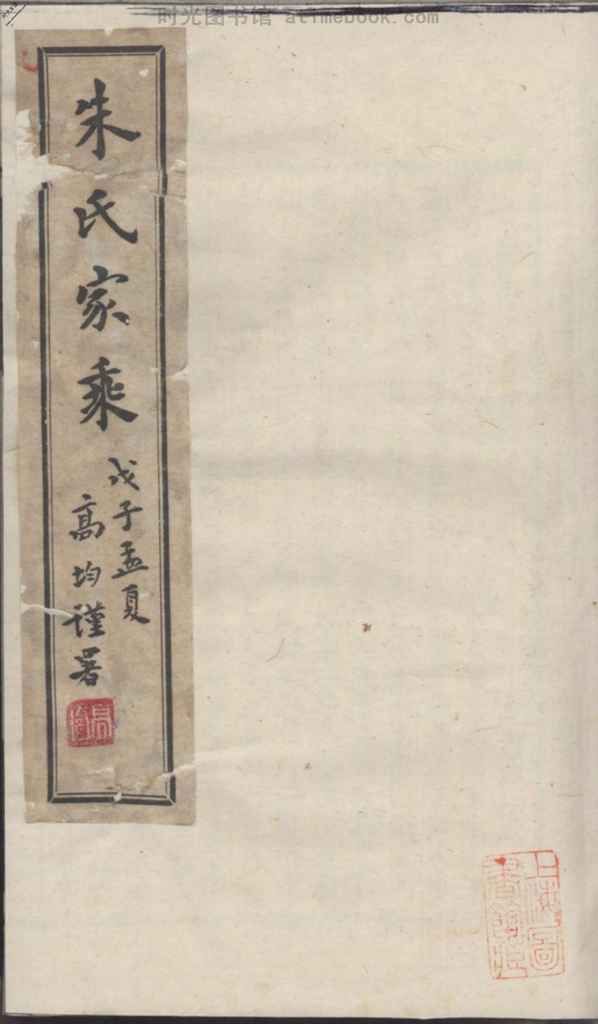 时光图书馆 atimebook.com
朱氏家乘
戊子孟夏
高均謹署
上海圖
書館藏